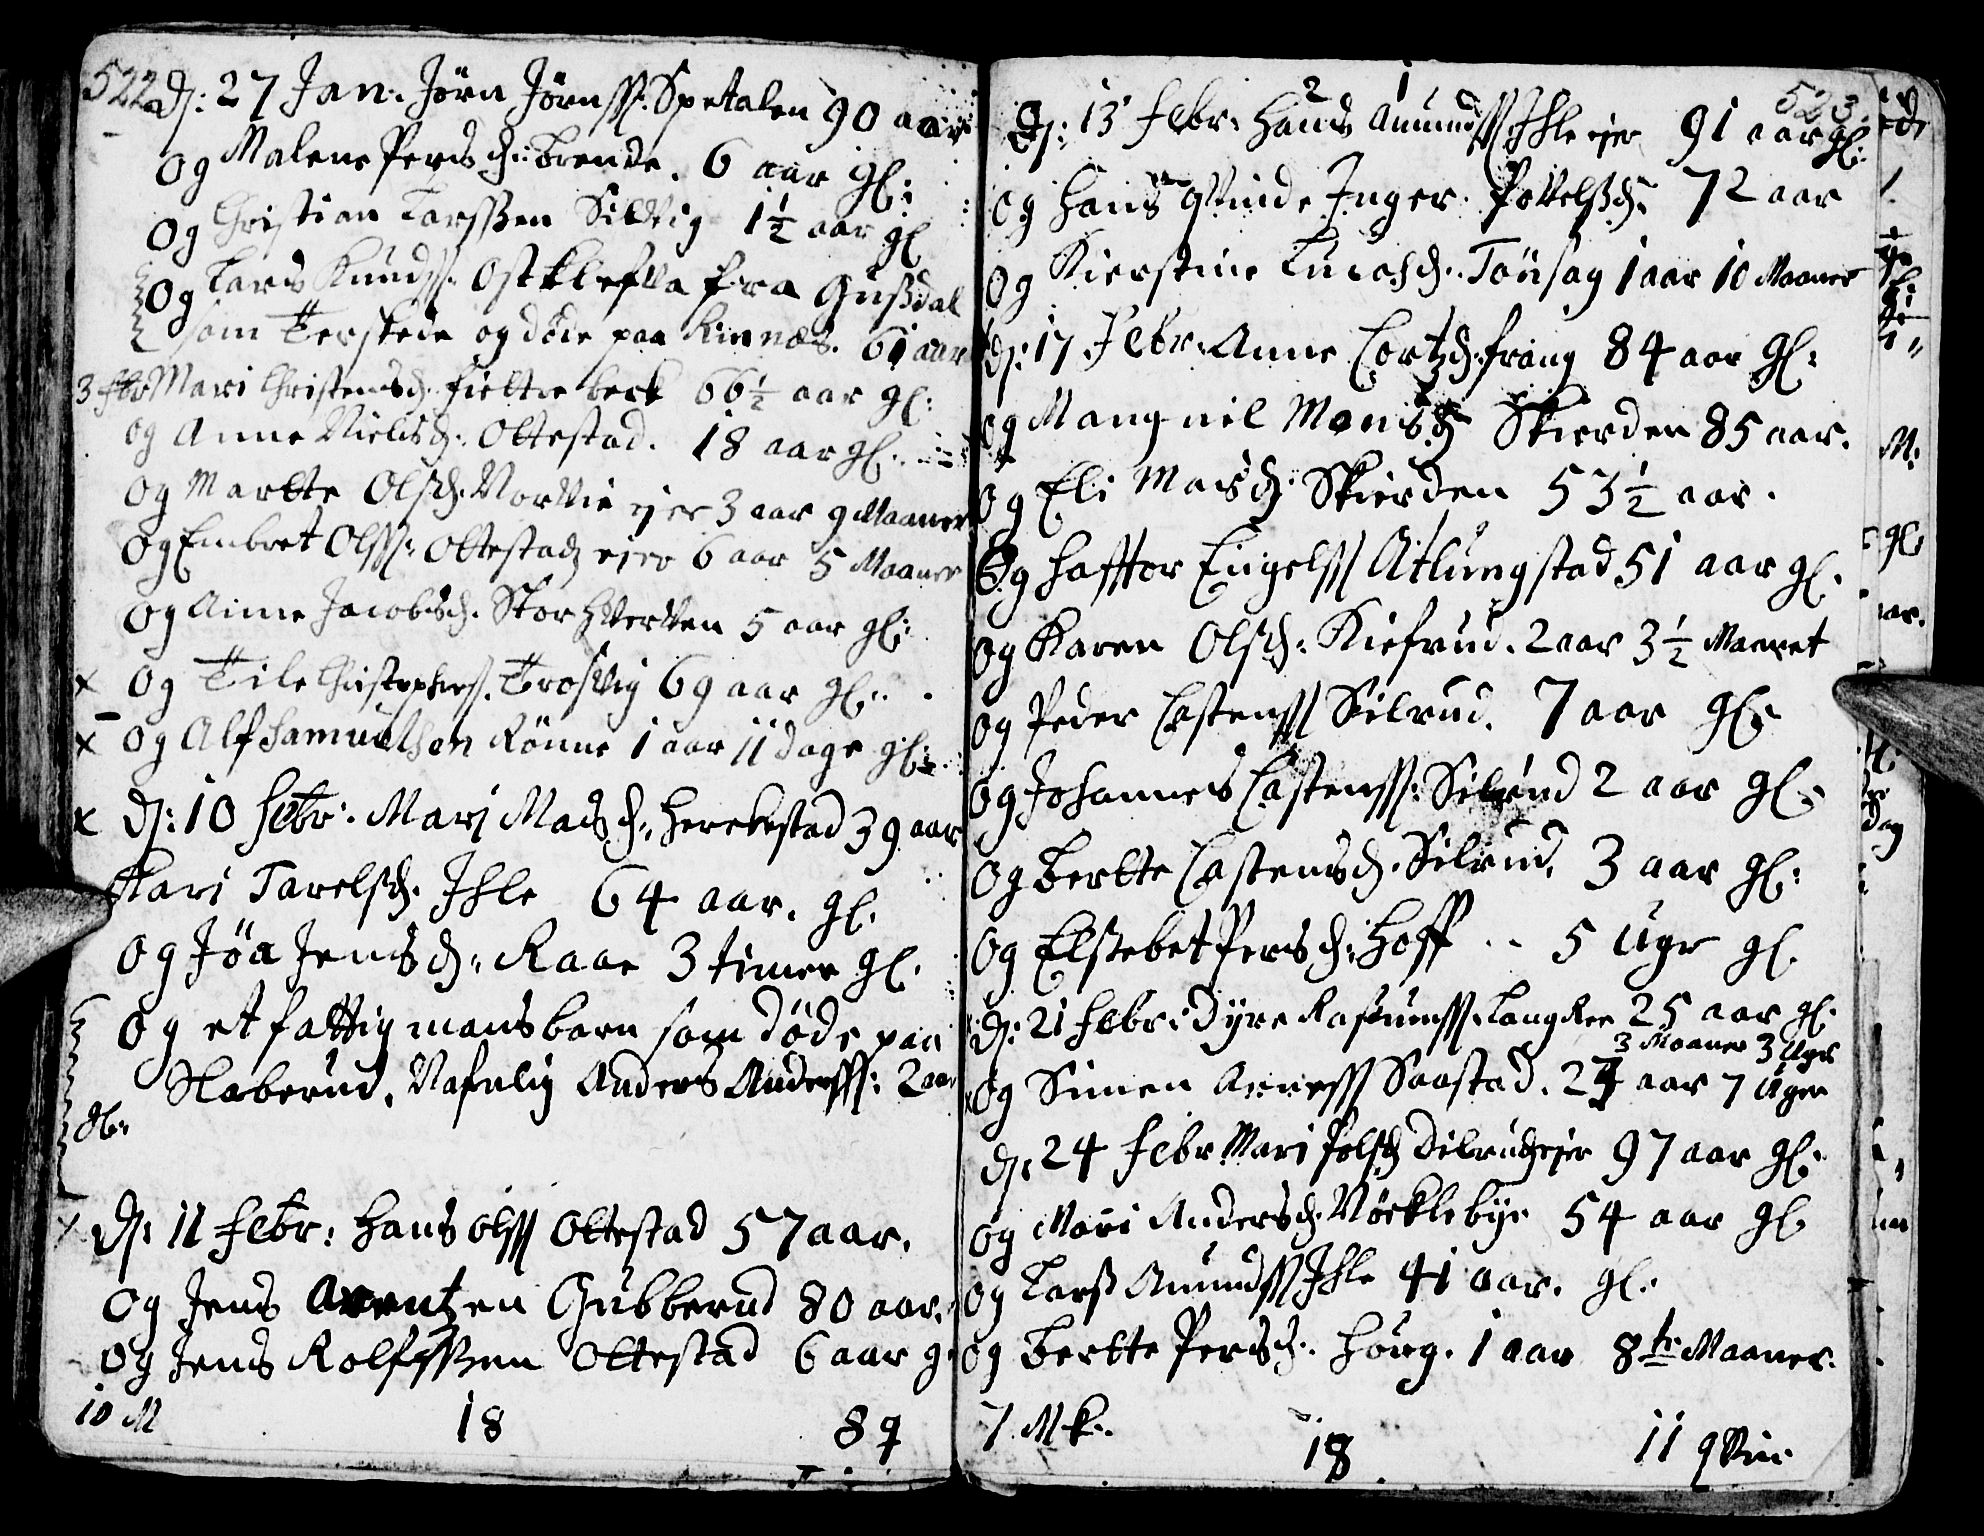 522
d: 27 Jan: Jörn Jörnss: Spetalen 90 aar
Og Malene Persd: brende. 6 aar gl:
Og Christian Larssen Sildvig 1½ aar gl
Og Lars Knuds: Ostklefva fra Gußdal
som Terskede og døde paa Kinnæs. 61 aar
3 fbr Mari Christensd: fieltebeck 66½ aar gl:
og Anne Nielsd: Ottestad. 18 aar gl:
Og Martte Olsd: Nordvie ejer 3 aar 9 Maaner
Og Embret Olss: Ottestad ejer 6 aar 5 Maaner
Og Anne Jacobsd: Storhverven 5 aar gl:
x Og Tile Christophers: Trosvig 69 aar gl:
x Og Alf Samuelsen Rönne 1 aar 11 dage gl:
x d: 10 febr: Marj Madsd: herckestad 39 aar
Kari Tarelsd: Ihle 64 aar. gl.
Og Jöa Jensd: Raae 3 timer gl.
Og et fattig mans barn som døde paa
Slaberud, Nafnlig Anders Anderss: 2 aar
gl:
x d: 11 febr: Hans olss Ottestad 57 aar.
Og Jens Arentzen Gubberud 80 aar.
Og Jens Rolfssen Ottestad 6 aar g
10 M 18 8 q
523.
2 1
D: 13 febr: Hans Amundss Ihle ejer 91 aar gl:
Og Hans qvinde Inger Povelsd: 72 aar
Og Kierstine Lucasd: Tönsag 1 aar 10 Maaner
d: 17 Febr: Anne Cortzd: frang 84 aar gl:
Og Mangnil Monsd Skierden 85 aar.
Og Eli Madsd: Skierden 53½ aar.
Og Haftor Engelss Atlungstad 51 aar gl.
Og Karen Olsd: Kiefrud. 2 aar 3½ Maanet
Og Peder Castenss Silrud. 7 aar gl:
Og Johannes Castenss: Silrud 2 aar gl:
Og bertte Castensd: Silrud, 3 aar gl:
Og Elssebet Persd: Hoff .. 5 Uger gl.
d: 21 febr: Dyre Rasmuss: Langree 25 aar gl.
3 Maaner 3 Uger
Og Simen Arness Saastad. 24 aar 7 Uger
d: 24 febr Mari Polsd Dilrud ejer 97 aar gl:
Og Mari Andersd: Nöcklebye 54 aar gl.
Og Lars Amundss Ihle 41 aar. gl.
Og bertte Persd: Houg. 1 aar 8te Maaner.
7 Mk: 18 11 qvin